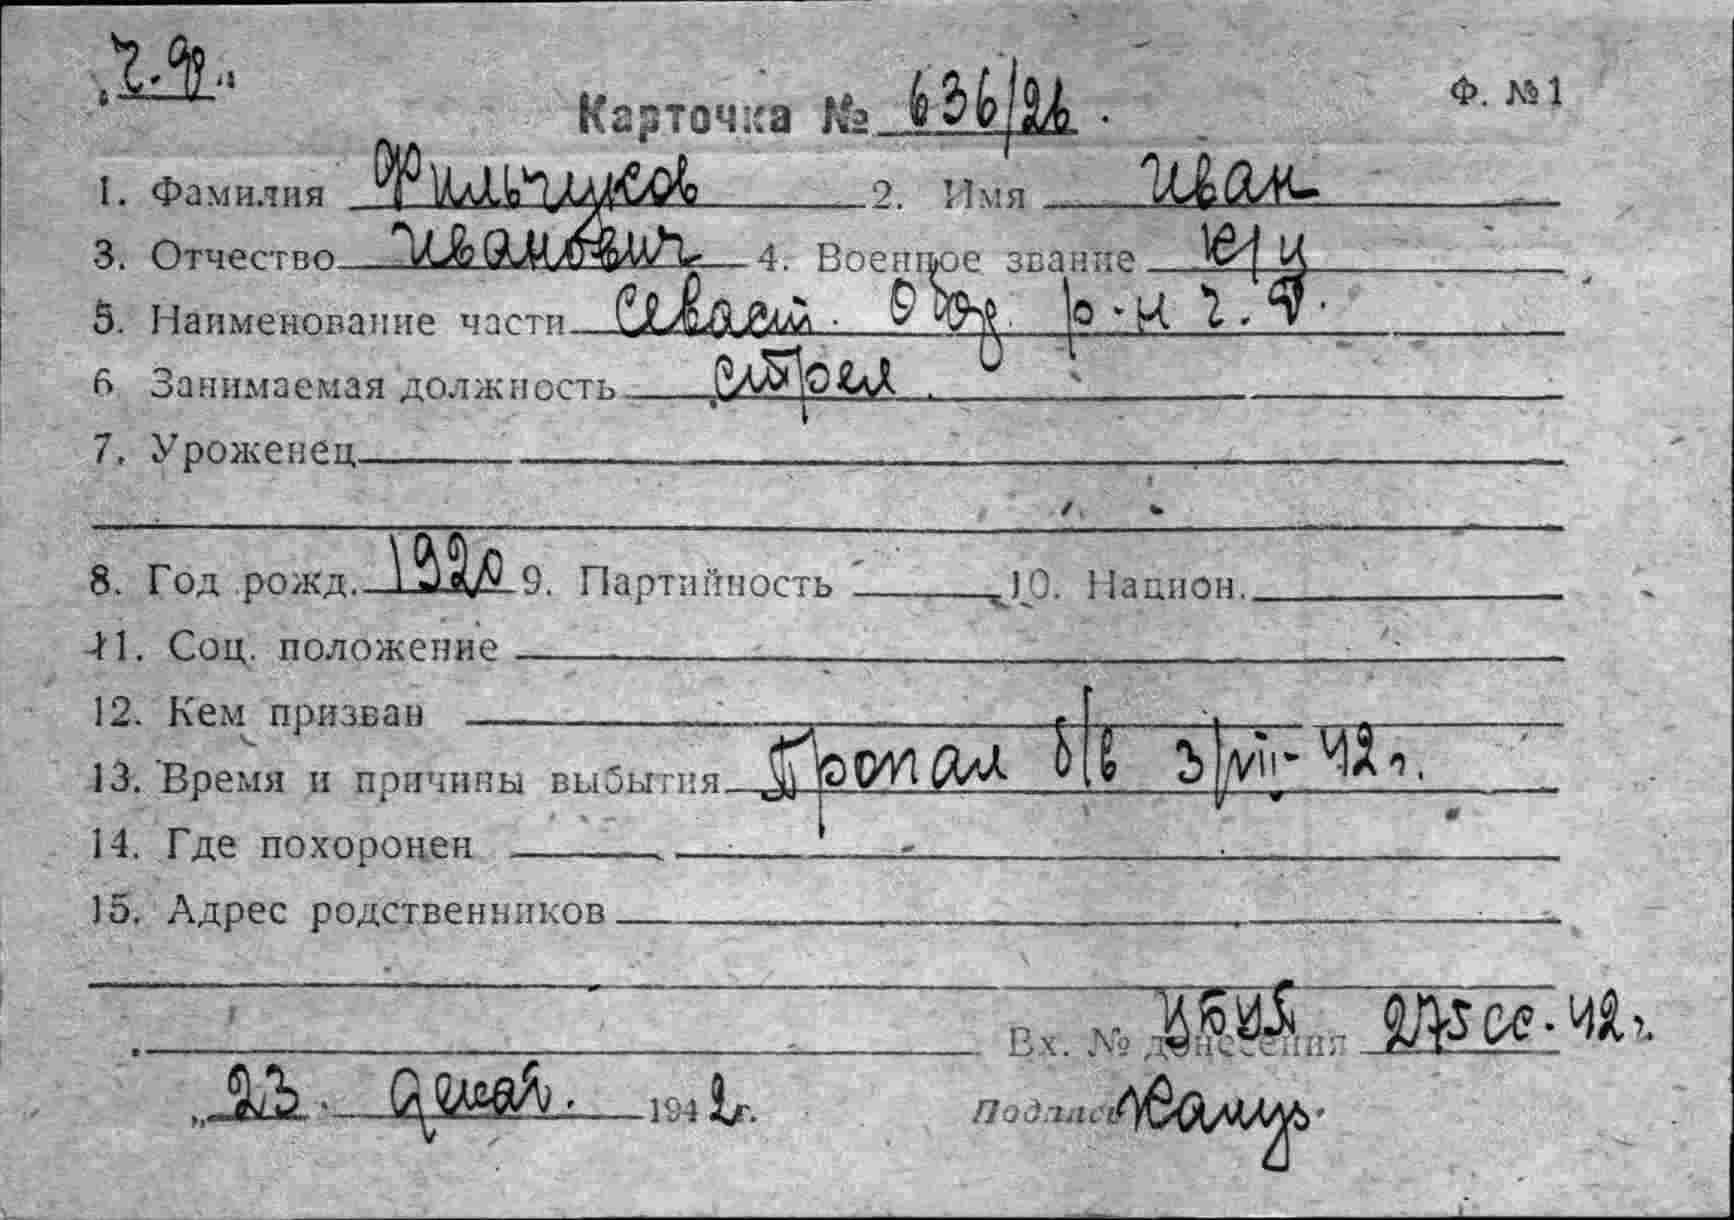 Ч.Ф.
Карточка № 636/26. Ф. №1
1. Фамилия Фильчуков 2. Имя Иван
3. Отчество Иванович 4. Военное звание к/ц
5. Наименование части Севаст. р-н Ч.Ф.
6 Занимаемая должность стрел
7. Уроженец
8. Год рожд. 1920 9. Партийность 10. Национ.
11. Соц. положение
12. Кем призван
13. Время и причины выбытия Пропал б/в 3/VII-42г.
14. Где похоронен
15. Адрес родственников
Вх. № донесения 275сс. 42г.
„23. декаб. 1942г. Подпись